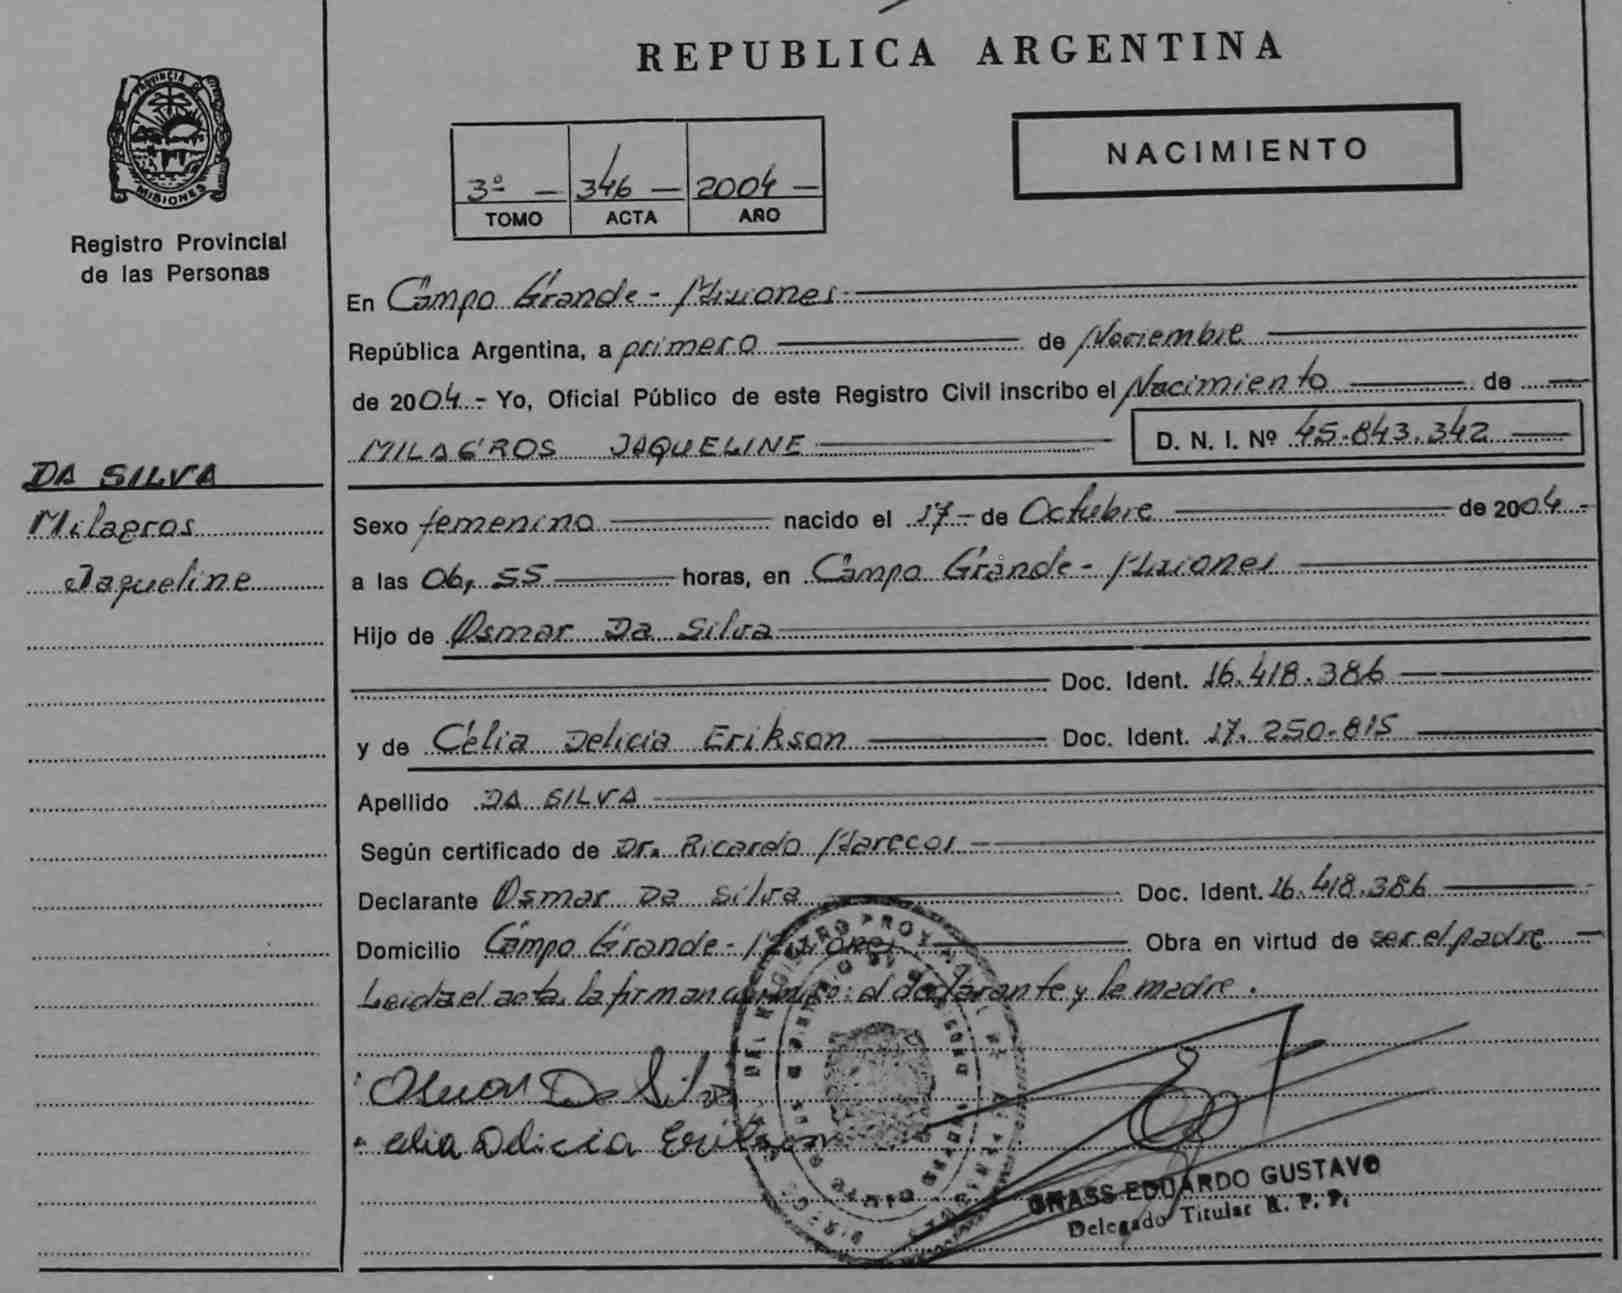 REPUBLICA ARGENTINA
PROVINCIA DE
MISIONES
Registro Provincial
de las Personas
3º - 346 - 2004 -
TOMO ACTA AÑO
NACIMIENTO
En Campo Grande - Misiones
República Argentina, a primero de Noviembre
de 2004.- Yo, Oficial Público de este Registro Civil inscribo el Nacimiento de
MILAGROS JAQUELINE D. N. I. Nº 45.843.342
DA SILVA
Milagros
Jaqueline
Sexo femenino nacido el 17 - de Octubre de 2004.-
a las 06,55 horas, en Campo Grande - Misiones
Hijo de Osmar Da Silva
Doc. Ident. 16.418.386
y de Célia Delicia Erikson Doc. Ident. 17.250.815
Apellido DA SILVA
Según certificado de Dr. Ricardo Marecos
Declarante Osmar Da Silva Doc. Ident. 16.418.386
Domicilio Campo Grande - Misiones Obra en virtud de ser el padre
Leida el acta, la firman conmigo: el declarante y la madre.
Osmar Da Silva
Celia Delicia Erikson
GRASS EDUARDO GUSTAVO
Delegado Titular R. P. P.